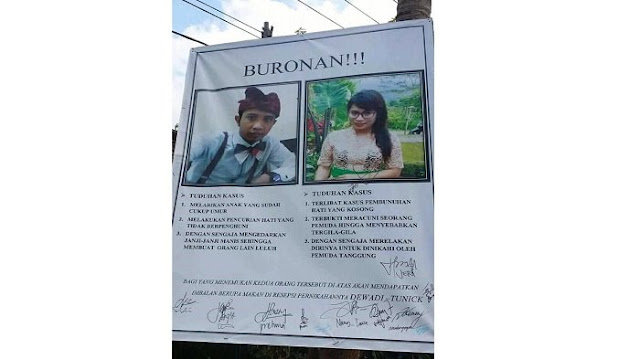 BURONAN!!!
TUDUHAN KASUS
1. MELARIKAN ANAK YANG SUDAH
CUKUP UMUR
2. MELAKUKAN PENCURIAN HATI YANG
TIDAK BERPENGHUNI
3. DENGAN SENGAJA MENGEDARKAN
JANJI-JANJI MANIS SEHINGGA
MEMBUAT ORANG LAIN LELUH
TUDUHAN KASUS
1. TERLIBAT KASUS PEMBUNUHAN
HATI YANG KOSONG
2. TERBUKTI MERACUNI SEORANG
PEMUDA HINGGA MENYEBABKAN
TERGILA-GILA
3. DENGAN SENGAJA MERELAKAN
DIRINYA UNTUK DINIKAHI OLEH
PEMUDA TANGGUNG
BAGI YANG MENEMUKAN KEDUA ORANG TERSEBUT DI ATAS AKAN MENDAPATKAN
IMBALAN BERUPA MAKAN DI RESEPSI PERNIKAHANNYA DEWADI - TUNICK